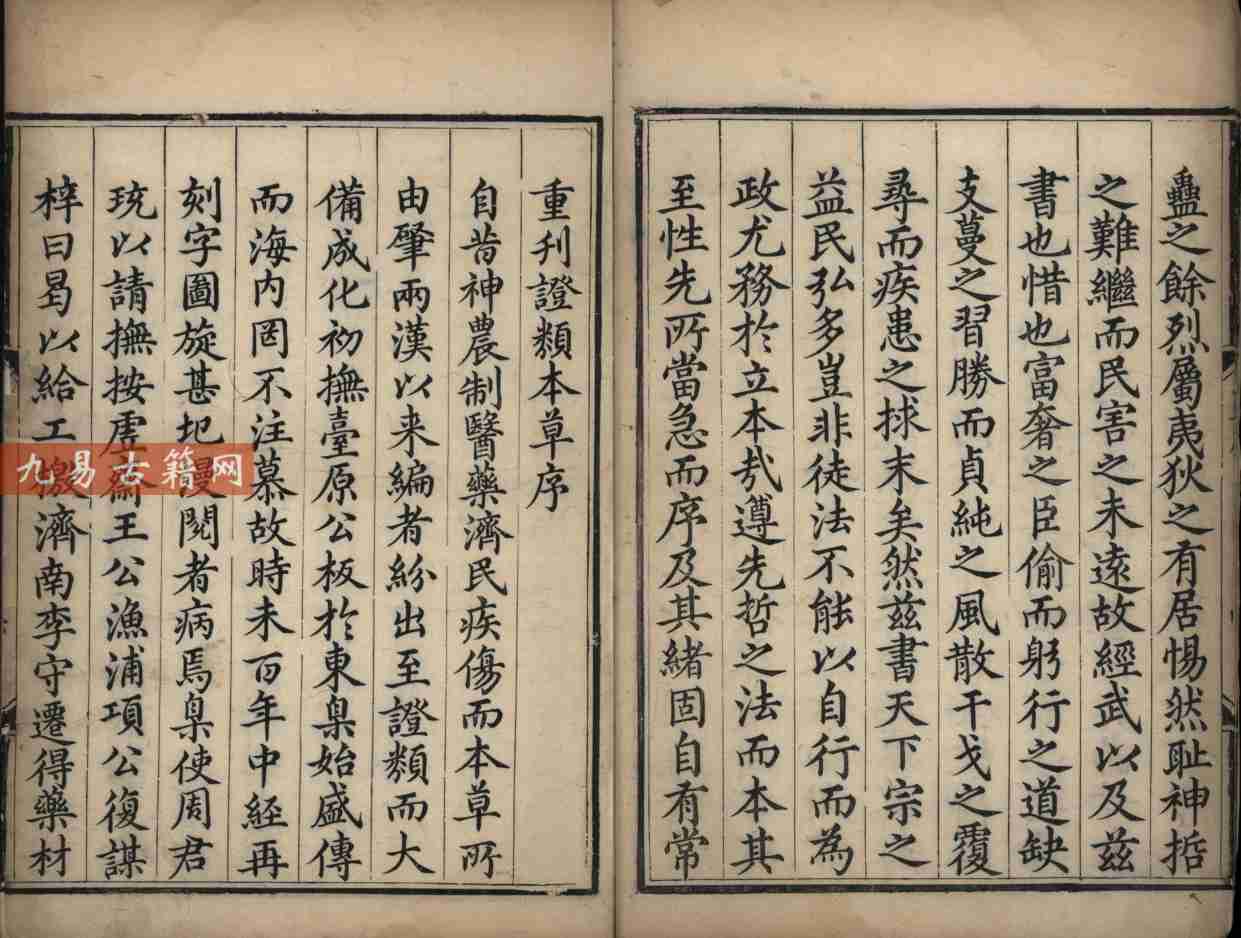 蠱之餘烈屬夷狄之有居惕然耻神哲
之難繼而民害之未遠故經武以及茲
書也惜也富奢之臣偷而躬行之道缺
支蔓之習勝而貞純之風散干戈之覆
尋而疾患之捄末矣然茲書天下宗之
益民弘多豈非徒法不能以自行而為
政尤務於立本㢤遵先哲之法而本其
至性先所當急而序及其緒固自有常
重刋證類本草序
自昔神農制醫藥濟民疾傷而本草所
由肈兩漢以来編者紛出至證類而大
備成化初撫臺原公板於東臬始盛傳
而海内罔不注慕故時未百年中經再
刻字圖旋甚圯漫閱者病焉臬使周君
珫以請撫按虗齋王公漁浦項公復謀
梓曰曷以給工檄濟南李守遷得藥材
九易古籍网